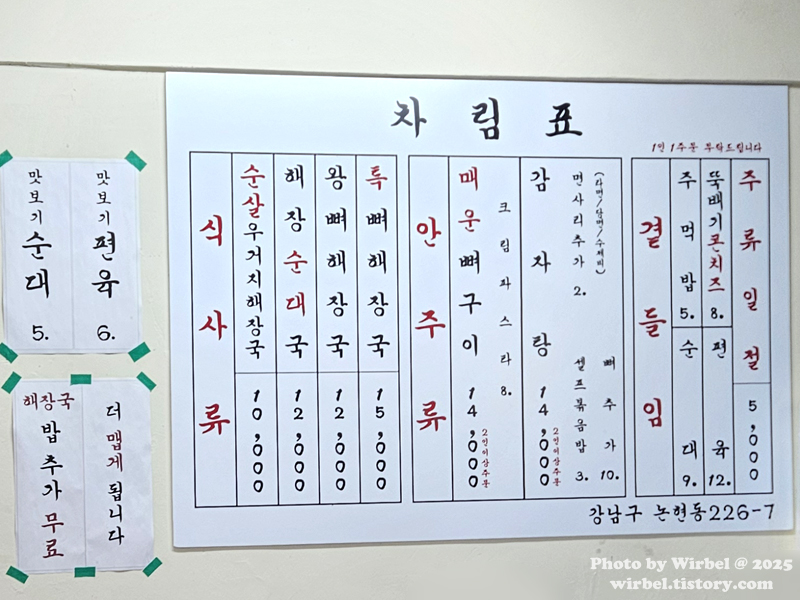 차림표
1인 1주문 부탁드립니다
식사류
순살우거지해장국 10,000
해장순대국 12,000
왕뼈해장국 12,000
특뼈해장국 15,000
안주류
매운뼈구이 14,000 2인이상주문
크림파스타 8.
감자탕 14,000 2인이상주문
면사리추가 2.
(라면/당면/수제비)
셀프볶음밥 3.
뼈추가 10.
곁들임
주먹밥 5.
뚝배기콘치즈 8.
순대 9.
편육 12.
주류일절 5,000
강남구 논현동226-7
맛보기 순대 5.
맛보기 편육 6.
해장국
밥추가 무료
더 맵게 됩니다
Photo by Wirbel @ 2025
wirbel.tistory.com